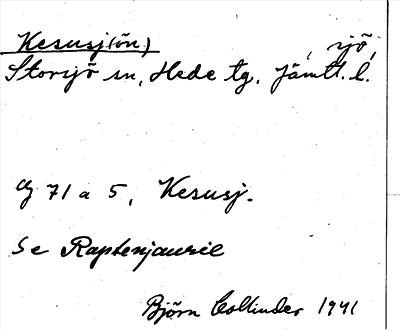 Kesusj(ön.) , sjö,
Storsjö sn, Hede tg. Jämtl. l.
71 a 5, Kesusj.
Se Raptenjaurie
Björn Collinder 1941